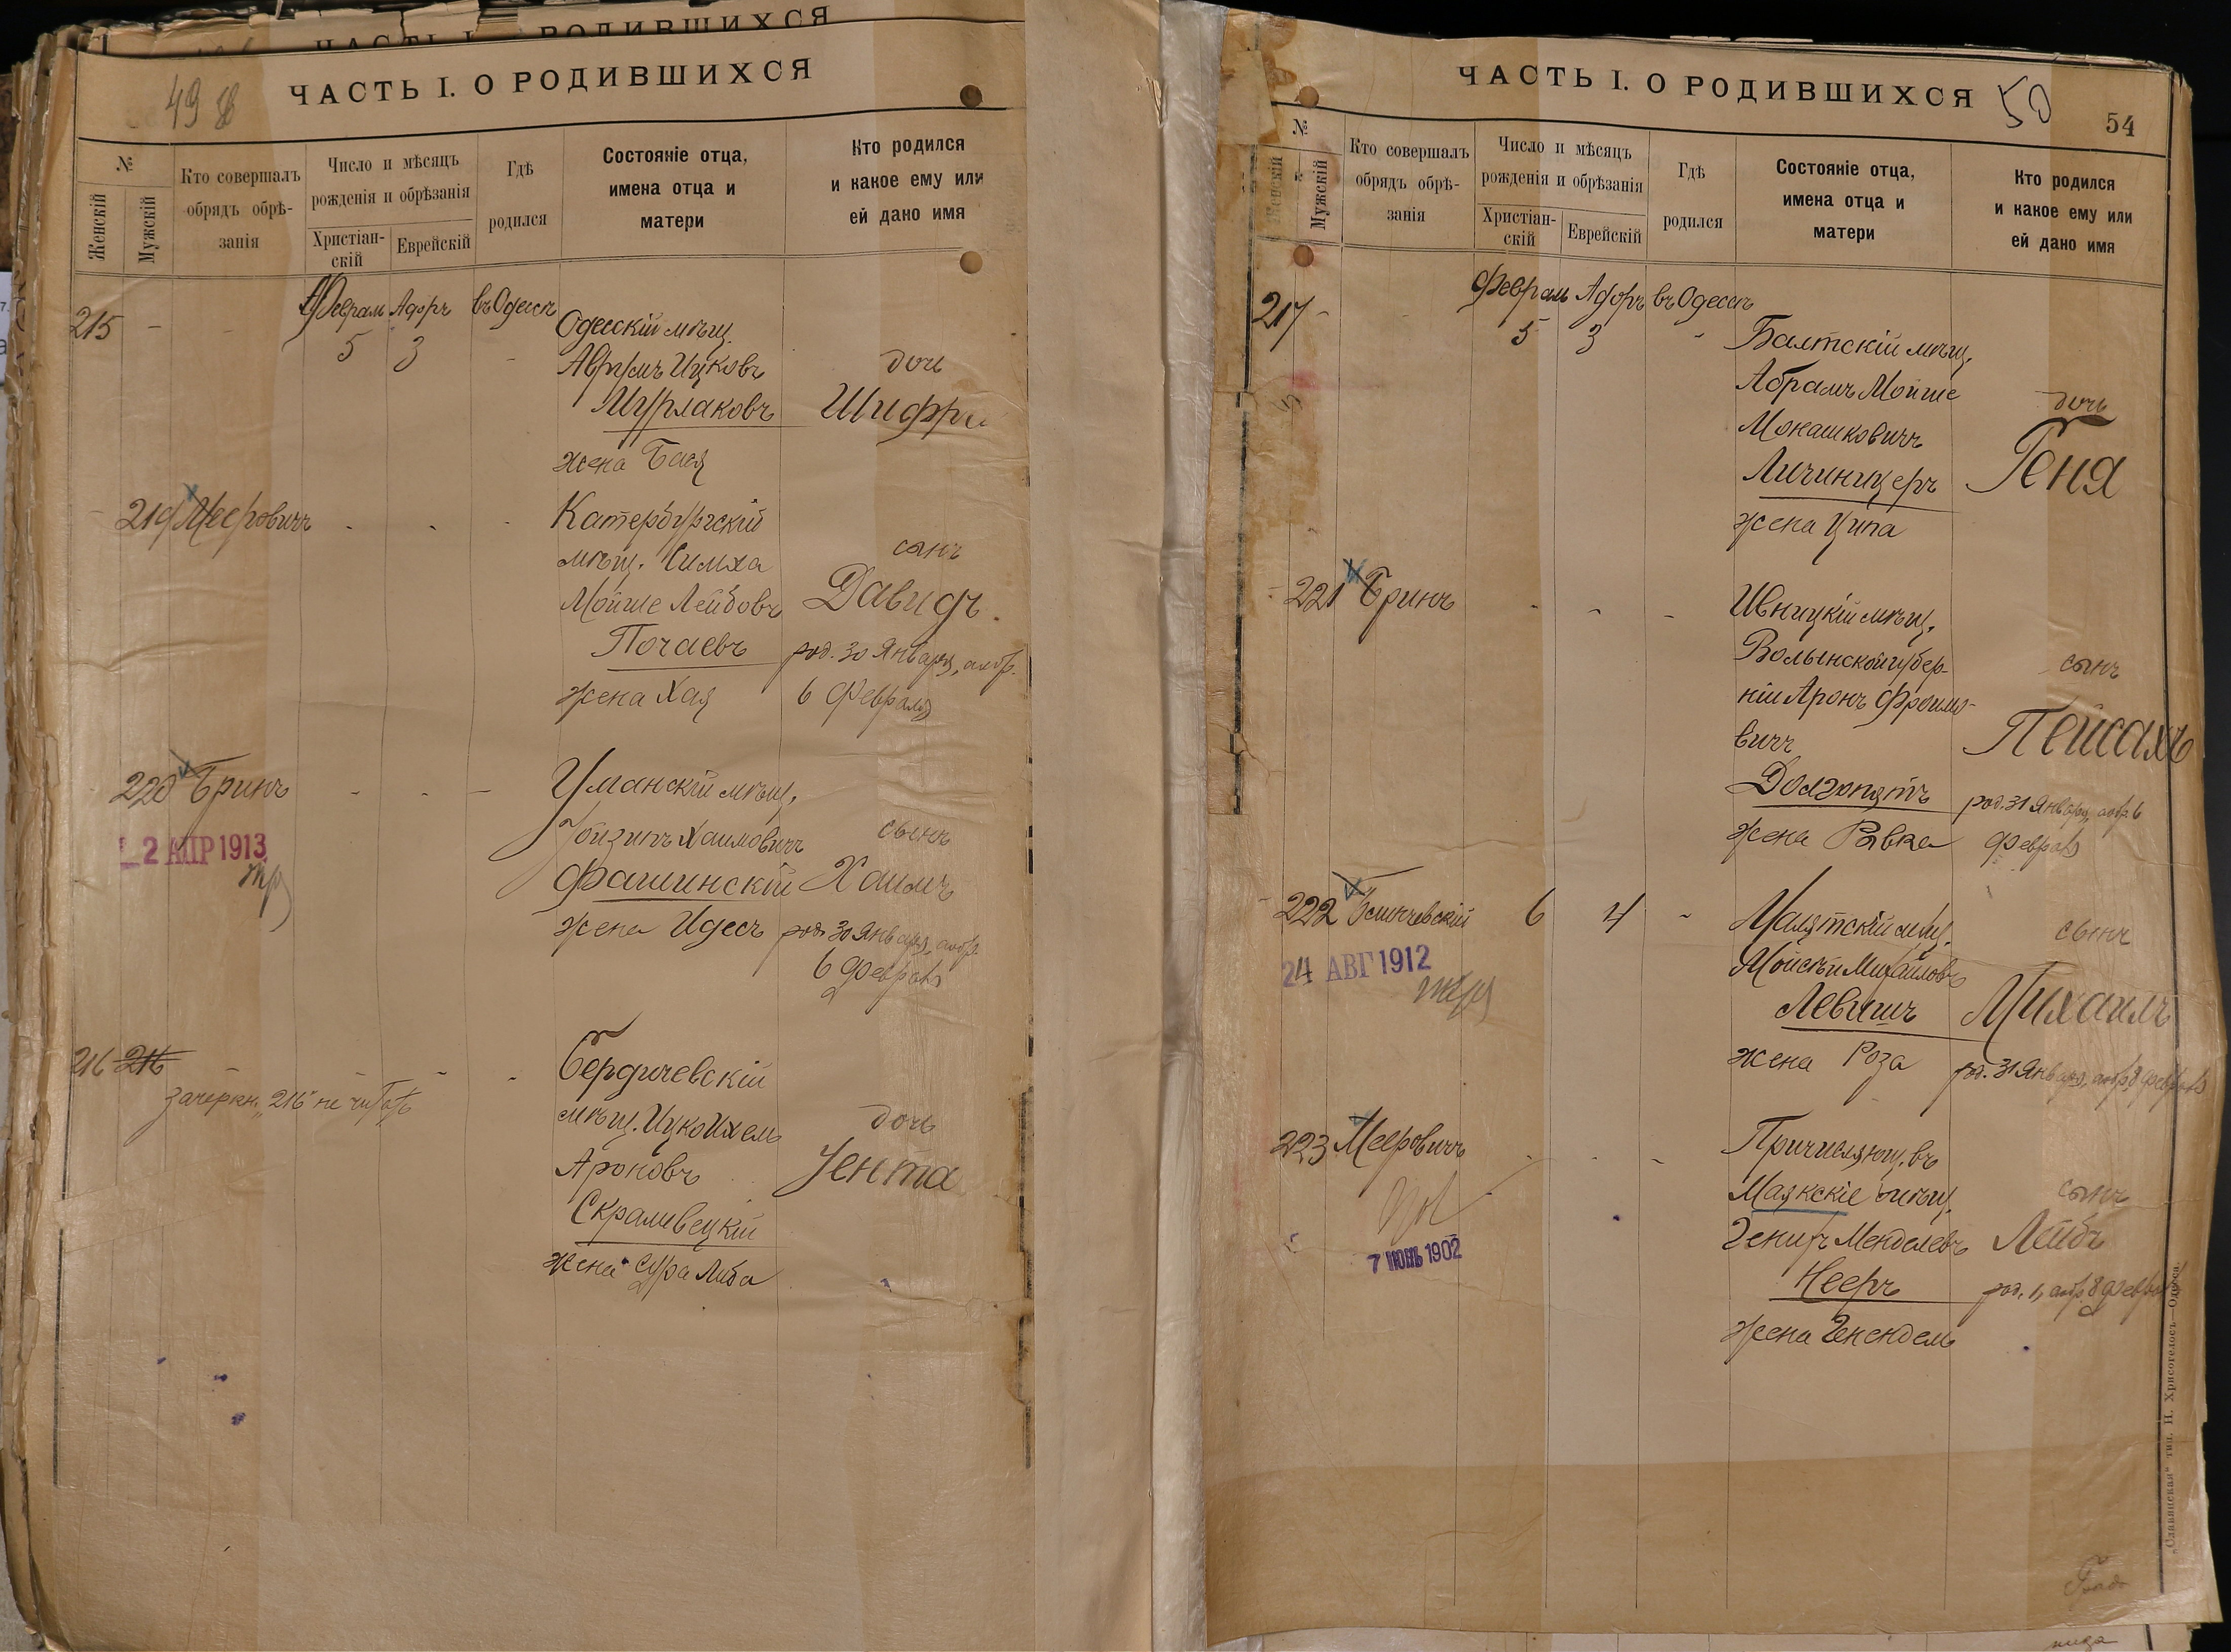 ЧАСТЬ I. О РОДИВШИХСЯ
49
ЧАСТЬ I. О РОДИВШИХСЯ
№
Женскій
Мужскій
Кто совершалъ
обрядъ обрѣ-
занія
Число и мѣсяцъ
рожденія и обрѣзанія
Христіан-
скій
Еврейскій
Гдѣ
родился
Состояніе отца,
имена отца и
матери
Кто родился
и какое ему или
ей дано имя
215 - - Февраль Адоръ въ Одессѣ
5 3 -
Одесскій мѣщ.
Аврумъ Ицковъ
Мурлаковъ
жена Бася
дочь
Шифра
219 Мееровичъ
Катербургскій
мѣщ. Симха
Мойше Лейбовъ
Почаевъ
жена Хая
сынъ
Давидъ.
род. 30 Января, а обр.
6 Февраля
220 Бринъ
2 АПР 1913
Уманскій мѣщ.
Хаимовичъ
Фашинскій
жена Идесъ
сынъ
Хаимъ
род. 30 Января, а обр.
6 Февраля
216 216
зачеркн. „216" не читать
Бердичевскій
мѣщ. Ицко Ихель
Ароновъ
Скраливецкій
жена Сура Либа
дочь
Ента
ЧАСТЬ I. О РОДИВШИХСЯ
50
54
№
Женскій
Мужскій
Кто совершалъ
обрядъ обрѣ-
занія
Число и мѣсяцъ
рожденія и обрѣзанія
Христіан-
скій
Еврейскій
Гдѣ
родился
Состояніе отца,
имена отца и
матери
Кто родился
и какое ему или
ей дано имя
217 - Февраль Адоръ въ Одессѣ
5 3 -
Балтскій мѣщ.
Абрамъ Мойше
Монашковичъ
Личиницеръ
жена Ципа
дочь
Геня
221 Бринъ
Ивницкій мѣщ.
Волынской губер-
ніи Аронъ Фроимо-
вичъ
Долгопятъ
жена Ривка
сынъ
Пейсахъ
род. 31 Января, а обр. 6
Февраля
222 6 4 -
24 АВГ 1912
Маятскій мѣщ.
Мойсѣй Михаиловъ
Левитъ
жена Роза
сынъ
Михаилъ
род. 31 Января, а обр. 8 Февраля
223 Мееровичъ
7 ИЮНЬ 1902
Причисляющ. въ
Маякскіе мѣщ.
Менделевъ
Нееръ
жена Генендель
сынъ
Лейбъ
род. 1, а обр. 8 Февраля
„Славянская" тип. Н. Хрисогелосъ—Одесса.